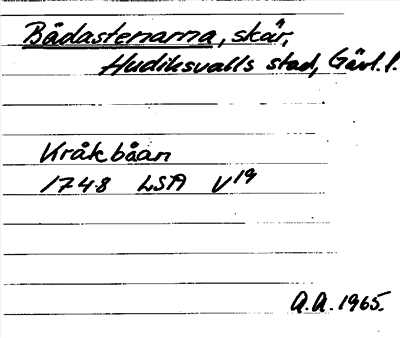 Bådastenarna, skär,
Hudiksvalls stad, Gävl. l.
Kråkbåan
1748 LSA V19
A.A. 1965.